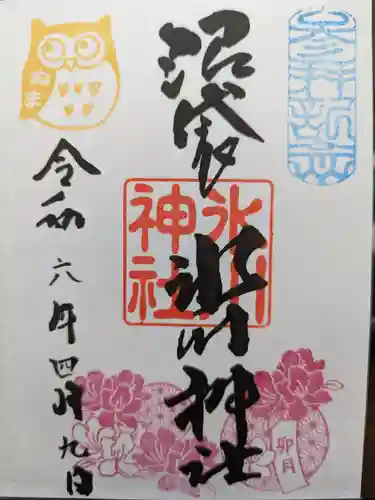 参拝記念
沼袋
氷川神社
氷川神社
卯月
ぬま
令和
六年四月九日